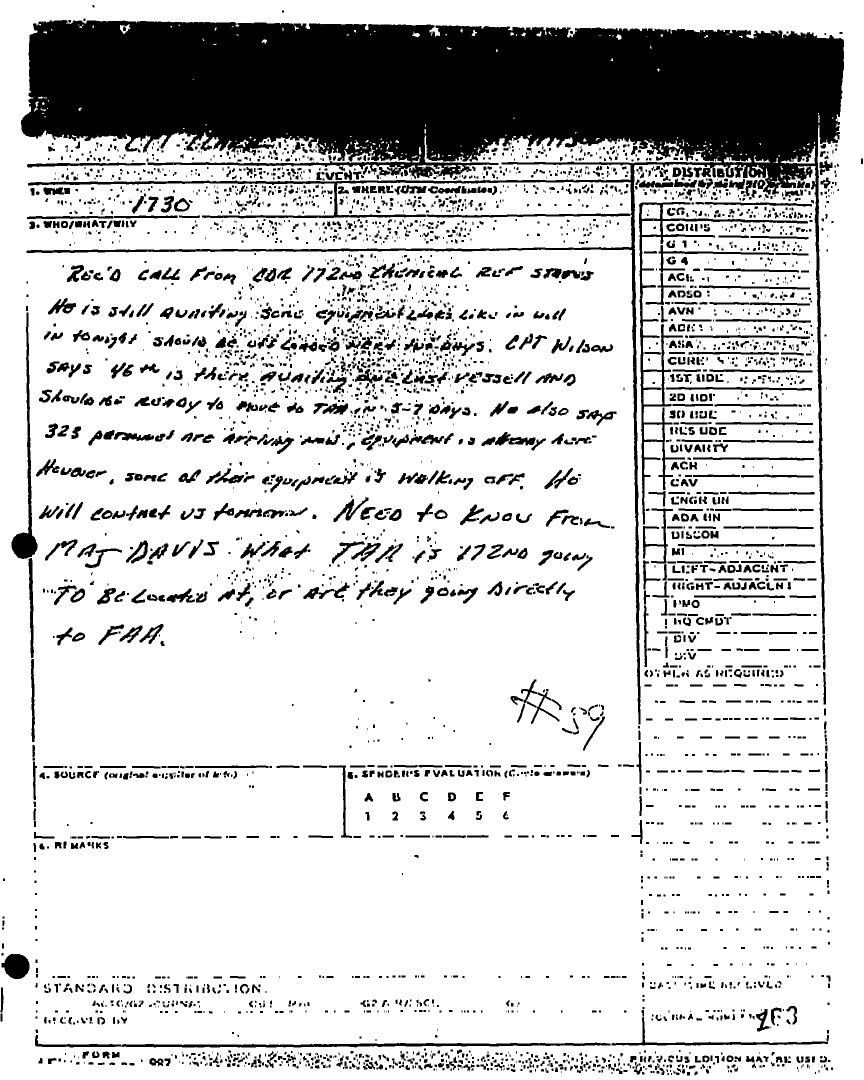 EVENT
DISTRIBUTION
1. WHEN
1730
2. WHERE (UTM Coordinates)
3. WHO/WHAT/WHY
REC'D CALL From CDR 172ND CHEMICAL REF STATUS
He is still awaiting some equipment Looks Like in will
in tonight should be off Loaded next two days. CPT Wilson
SAYS 46th is there awaiting one Last vessell AND
Should be READY to move to TAA in 5-7 DAYS. He also SAYS
323 personnel are arriving now, equipment is already here
However, some of their equipment is walking off. He
will contact us tomorrow. NEED to KNOW From
MAJ DAVIS what TAA is 172ND going
TO BE Located At, or are they going Directly
to FAA.
#59
CG
CORPS
G 1
G 4
AVN
1ST BDE
2D BDE
3D BDE
RES BDE
DIVARTY
ACR
CAV
ENGR BN
ADA BN
DISCOM
MI
LEFT-ADJACENT
RIGHT-ADJACENT
PMO
HQ CMDT
DIV
DIV
OTHER AS REQUIRED
4. SOURCE (original supplier of info)
5. SENDER'S EVALUATION (Circle answers)
A B C D E F
1 2 3 4 5 6
6. REMARKS
STANDARD DISTRIBUTION:
RECEIVED BY
DATE TIME RECEIVED
JOURNAL NUMBER
163
FORM
PREVIOUS EDITION MAY BE USED.